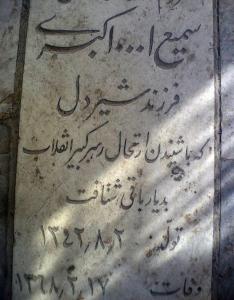 سمیع ا... اکبری
فرزند شیردل
که با شنیدن ارتحال رهبر کبیر انقلاب
بدیار باقی شتافت
تولد: ۱۳۴۲٫۸٫۲
وفات: ۱۳۶۸٫۳٫۱۷